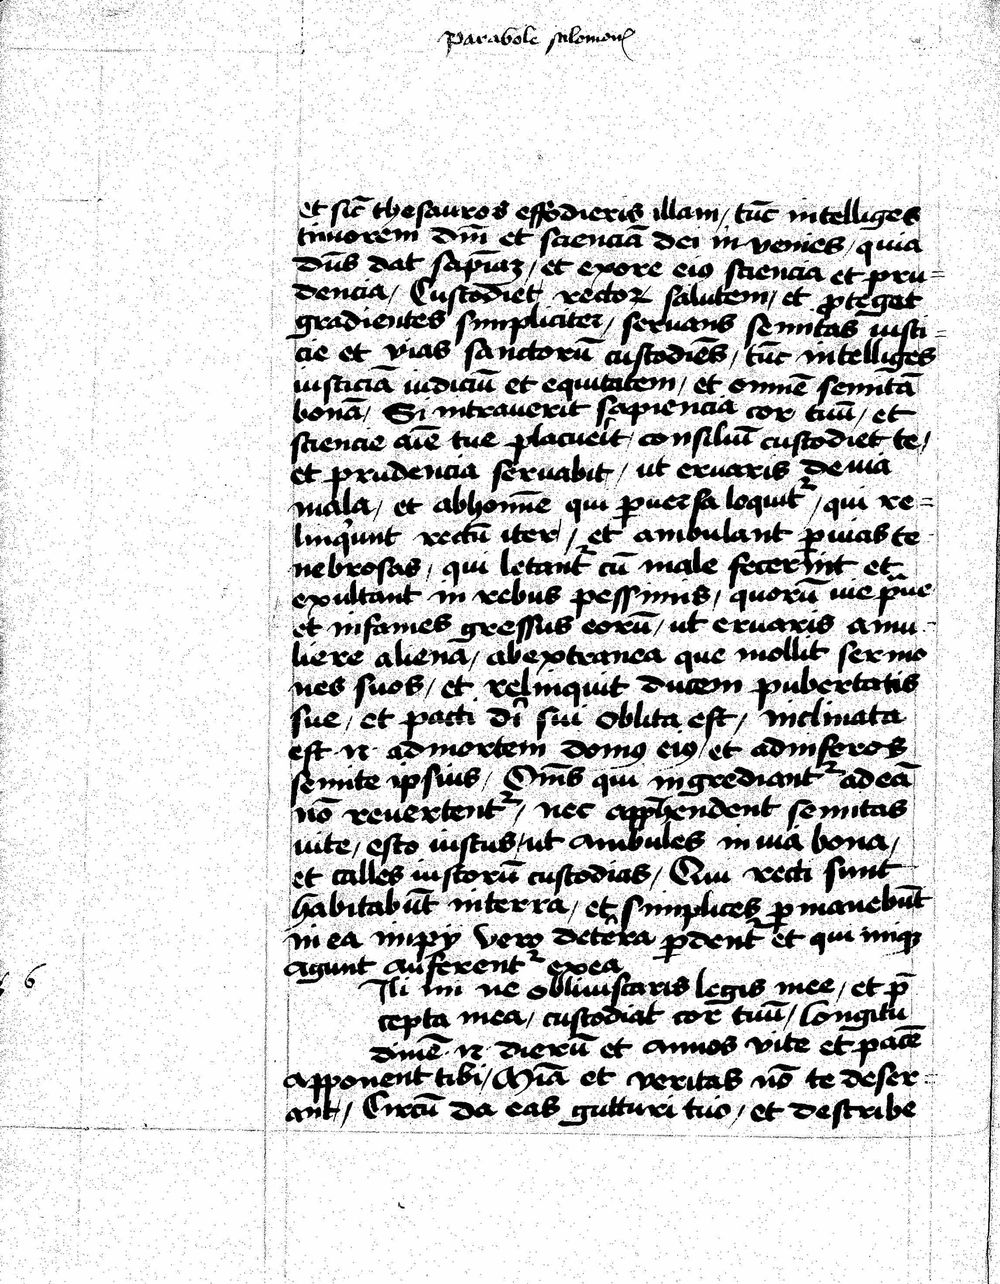 Parabole salomonis
et sic̄ thesauros effodieris illam / tūc intelliges
timorem dm̄ et scienciā dei in venies / quia
dn̄s dat sapīaꝫ / et exore eiꝰ sciencia et pru=
dencia / Custodiet rectoꝝ salutem / et ꝓtegat
gradientes simpliciter / seruans semitas iusti=
cie et vias sanctorū custodiēs / tūc intelliges
iusticiā iudiciū et equitatem / et omnē semitā
bonā / Si intrauerit sapiencia cor tuū / et
sciencie aīe tue placuerit / consiliū custodiet te /
et prudencia seruabit / ut eruaris de uia
mala / et abhoīne qui ꝑuersa loquit᷑ / qui re=
linqūnt rectū iter / et ambulant ꝑ uias te
nebrosas / qui letant᷑ cū male fecerint et
exultant in rebus pessimis / quorū uie ꝑūe
et infames gressus eorū / ut eruaris amu=
liere aliena / abextranea que mollit sermo
nes suos / et relinquit ducem pubertatis
sue / et pacti dī sui oblita est / inclinata
est .n. admortem domꝰ eiꝰ / et adinferos
semite ipsius / Om̄s qui ingrediunt᷑ adeā
nō reuertent᷑ / nec appͪendent semitas
uite / esto iustus / ut ambules in uia bona /
et calles iustorū custodias / Qui recti sunt
habitabūt interra / et simplices ꝑmanebūt
in ea impij vero de terra ꝑdent᷑ et qui iniq
agunt auferent᷑ exea
6 Ili mi ne obliuiscaris legis mee / et p̄
cepta mea / custodiat cor tuū / longitu
dinē .n. dierū et annos vite et pacē
apponent tibi / Mīa et veritas nō te deser=
ant / Circū da eas gutturi tuo / et describe